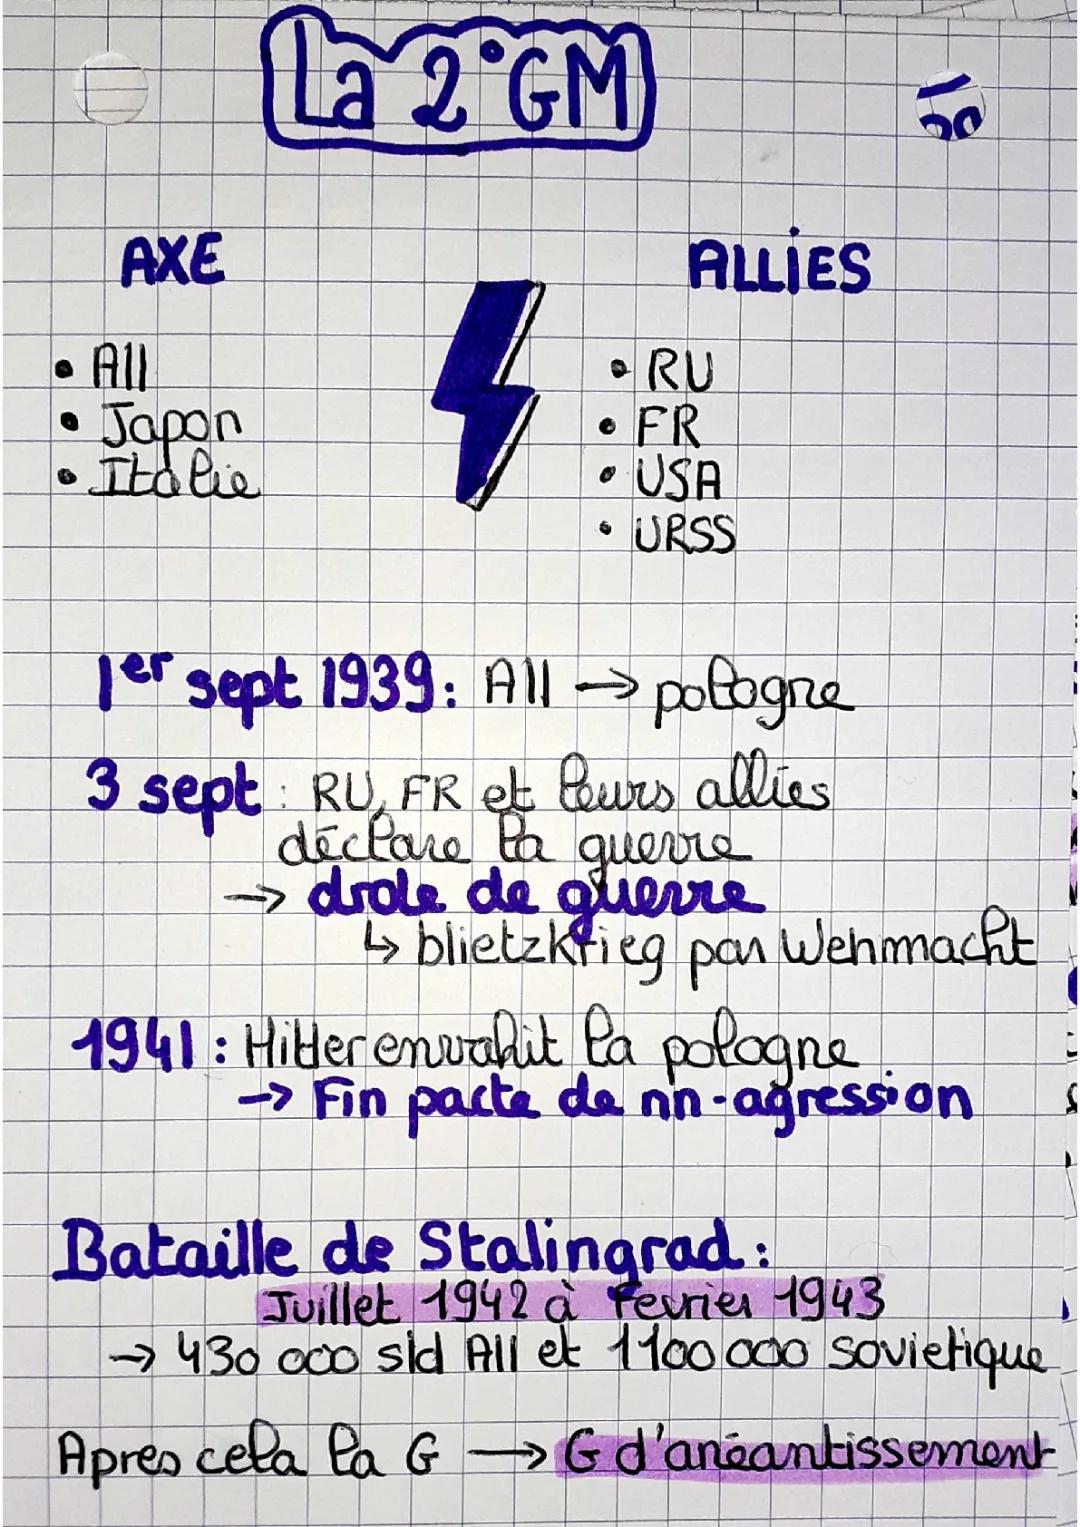 La 2°GM
AXE
ALLiES
• All
• Japon
• Italie
• RU
• FR
• USA
• URSS
1er sept 1939: All → pologne
3 sept : RU, FR et leurs alliés
déclare la guerre
→ drole de guerre
↳ blietzkrieg par Wehrmacht
1941 : Hitler envahit la pologne
→ Fin pacte de nn-agression
Bataille de Stalingrad :
Juillet 1942 à Fevrier 1943
→ 430 000 sld All et 1100 000 sovietique
Apres cela la G → G d'anéantissement